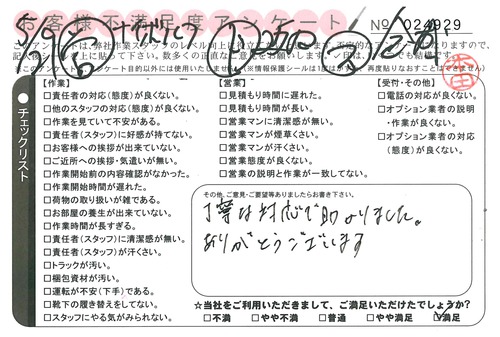 お客様不満足度アンケート
No 024929
【作業】
□責任者の対応(態度)が良くない。
□他のスタッフの対応(態度)が良くない。
□作業を見ていて不安がある。
□責任者(スタッフ)に好感が持てない。
□お客様への挨拶が出来ていない。
□ご近所への挨拶・気遣いが無い。
□作業開始前の内容確認がなかった。
□作業開始時間が遅れた。
□荷物の取り扱いが雑である。
□お部屋の養生が出来ていない。
□作業時間が長すぎる。
□責任者(スタッフ)に清潔感が無い。
□責任者(スタッフ)が汗くさい。
□トラックが汚い。
□梱包資材が汚い。
□運転が不安(下手)である。
□靴下の履き替えをしてない。
□スタッフにやる気がみられない。
【営業】
□見積もり時間に遅れた。
□見積もり時間が長い。
□営業マンに清潔感が無い。
□営業マンが煙草くさい。
□営業マンが汗くさい。
□営業態度が良くない。
□営業の説明と作業が一致してない。
【受付・その他】
□電話の対応が良くない。
□オプション業者の説明
・作業が良くない。
□オプション業者の対応
(態度)が良くない。
チェックリスト
その他、ご意見・ご要望等ありましたらお書き下さい。
丁寧な対応で助かりました。
ありがとうございます
☆当社をご利用いただきまして、ご満足いただけたでしょうか?
□不満 □やや不満 □普通 □やや満足 ☑満足